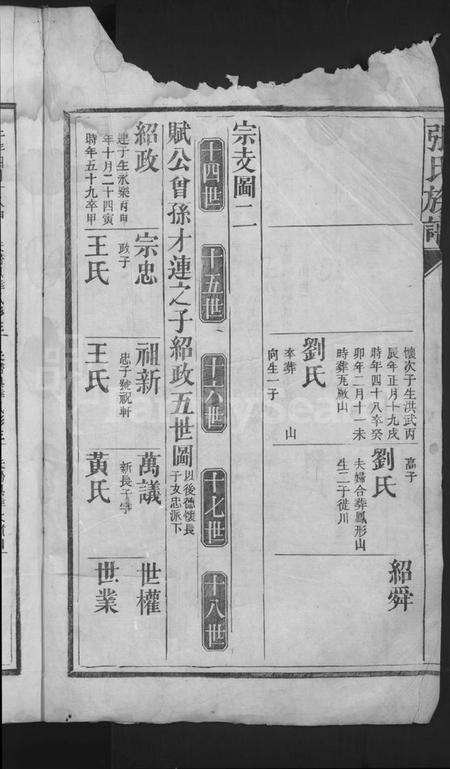 張氏族譜
懷次子生洪武丙
辰年正月十九戌
時年四十八卒癸
卯年二月十一未
時葬九墩山
劉氏
卒葬 山
向生一子
嵩子
劉氏
夫婦合葬鳳形山
生二子徙川
紹舜
宗支圖二
十四世 十五世 十六世 十七世 十八世
賦公曾孫才連之子紹政五世圖
以後德懷長
子友忠派下
紹政
建子生永樂
年十月二十四寅
時年五十九卒甲
宗忠
政子
王氏
祖新
忠子號祝軒
王氏
萬議
新長子
黃氏
世權
世業